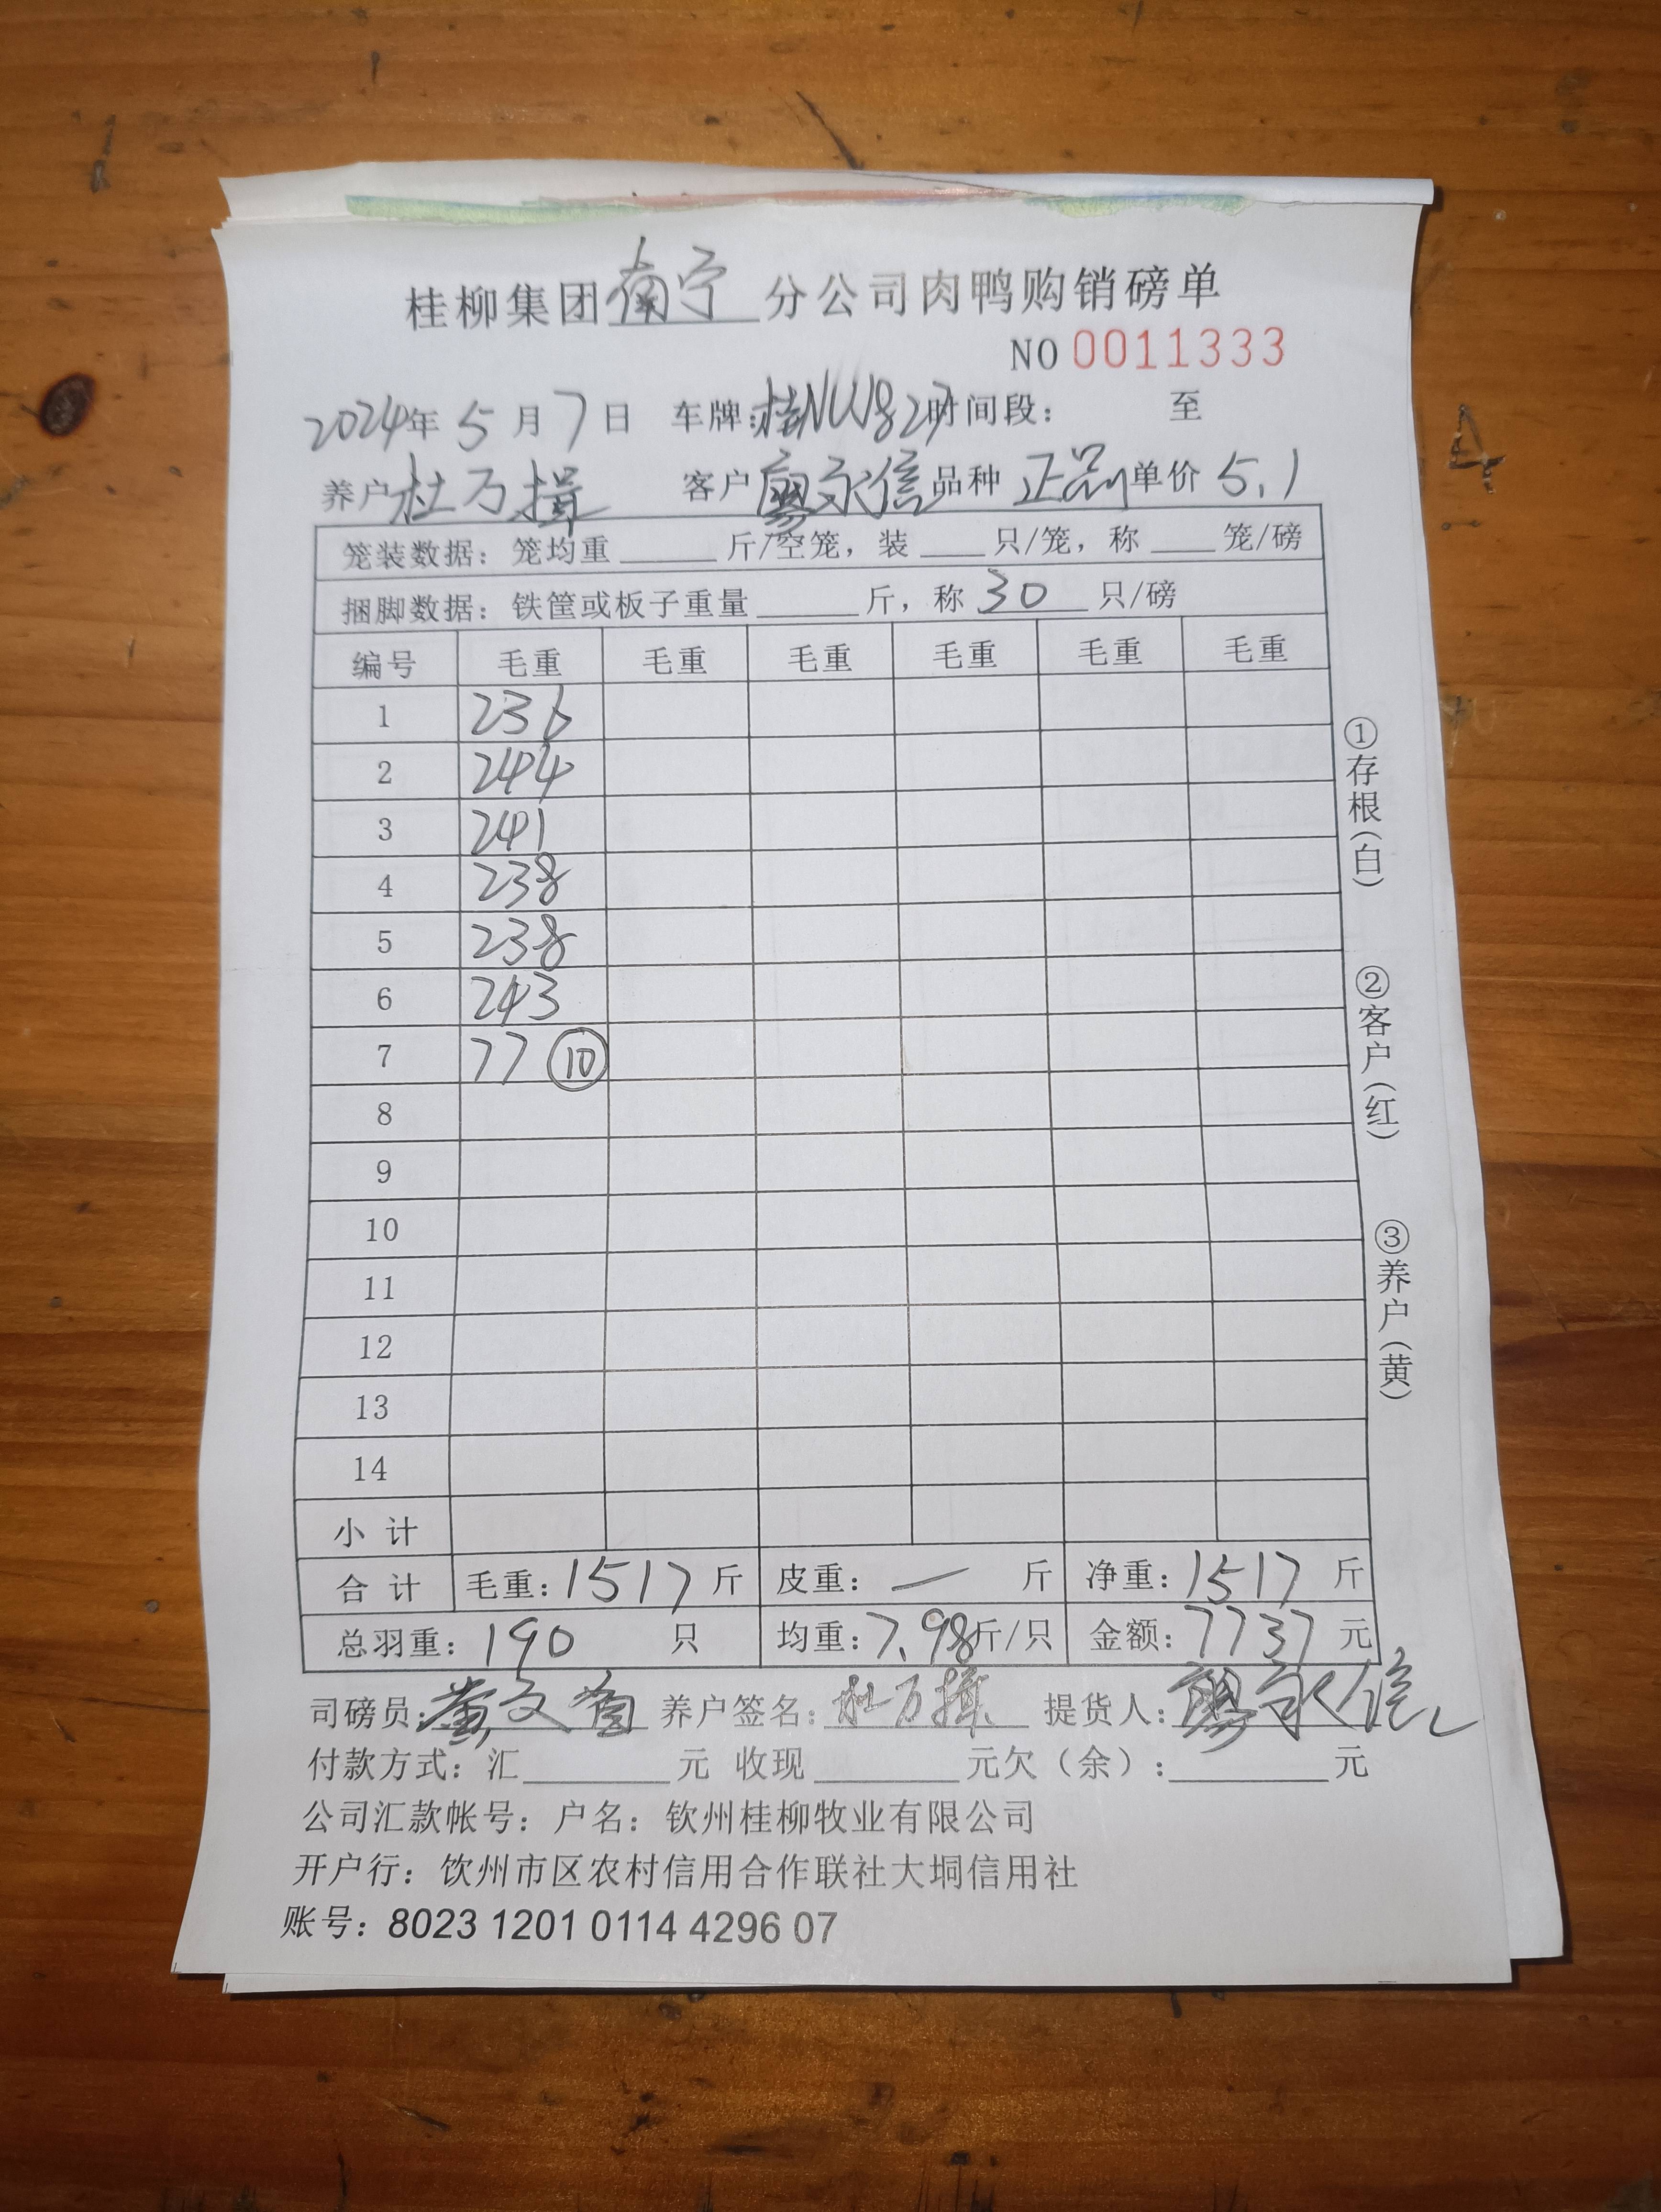 桂柳集团南宁分公司肉鸭购销磅单
NO 0011333
2024年 5 月 7 日 车牌: 时间段: 至
养户 杜万揖 客户 廖永信 品种 正品 单价 5.1
笼装数据: 笼均重____斤/空笼, 装____只/笼, 称____笼/磅
捆脚数据: 铁筐或板子重量____斤, 称 30 只/磅
编号 毛重 毛重 毛重 毛重 毛重 毛重
1 236
2 244
3 241
4 238
5 238
6 243
7 77 ⑩
8
9
10
11
12
13
14
小计
合计 毛重: 1517 斤 皮重: — 斤 净重: 1517 斤
总羽重: 190 只 均重: 7.98斤/只 金额: 7737 元
司磅员: 养户签名: 杜万揖 提货人: 廖永信
付款方式: 汇____元 收现____元欠(余):____元
公司汇款帐号: 户名: 钦州桂柳牧业有限公司
开户行: 钦州市区农村信用合作联社大垌信用社
账号: 8023 1201 0114 4296 07
①存根(白)
②客户(红)
③养户(黄)